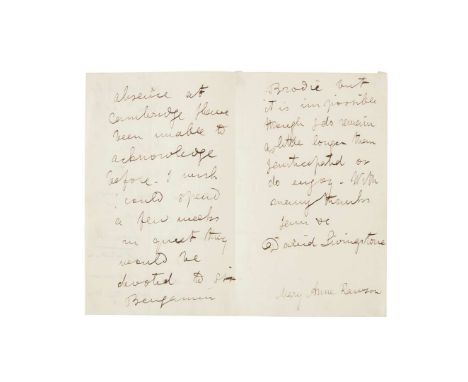 absence at
Cambridge I have
been unable to
acknowledge
before. I wish
I could spend
a few weeks
in quiet they
would be
devoted to Sir
Bengamin
Brodie but
it is impossible
though I do remain
a little longer than
I anticipated or
do enjoy. With
many thanks
I am &c
David Livingstone
Mary Anne Rawson